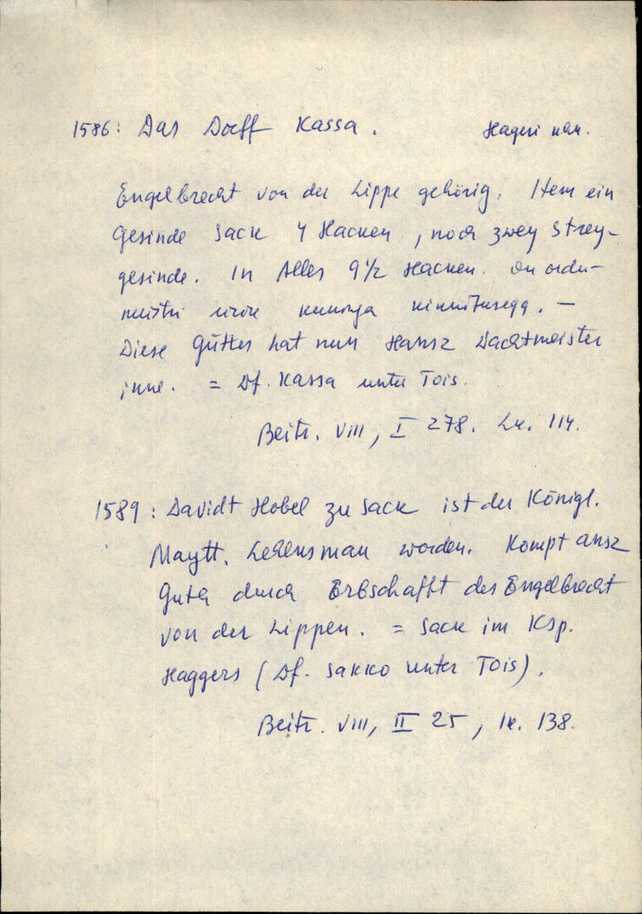 1586: Das Dorff Kassa. Hageri khk.
Engelbrecht von der Lippe gehörig. Item ein
Gesinde Sack 4 Hacken, noch zwey Strey-
gesinde. In Alles 9 1/2 Hacken. On ordu-
meistri uue kuninga kinnitusega. —
Diese Gütter hat nun Hansz Wachtmeister
inne. = Df. Kassa unter Tois.
Beitr. VIII, I 278. Lk. 114.
1589: Davidt Hobel zu Sack ist der Königl.
Maytt. Lehensman worden. Kompt ansz
Guth durch Erbschafft des Engelbrecht
von der Lippen. = Sack im Ksp.
Haggers (Df. Sakko unter Tois).
Beitr. VIII, II 25, lk. 138.